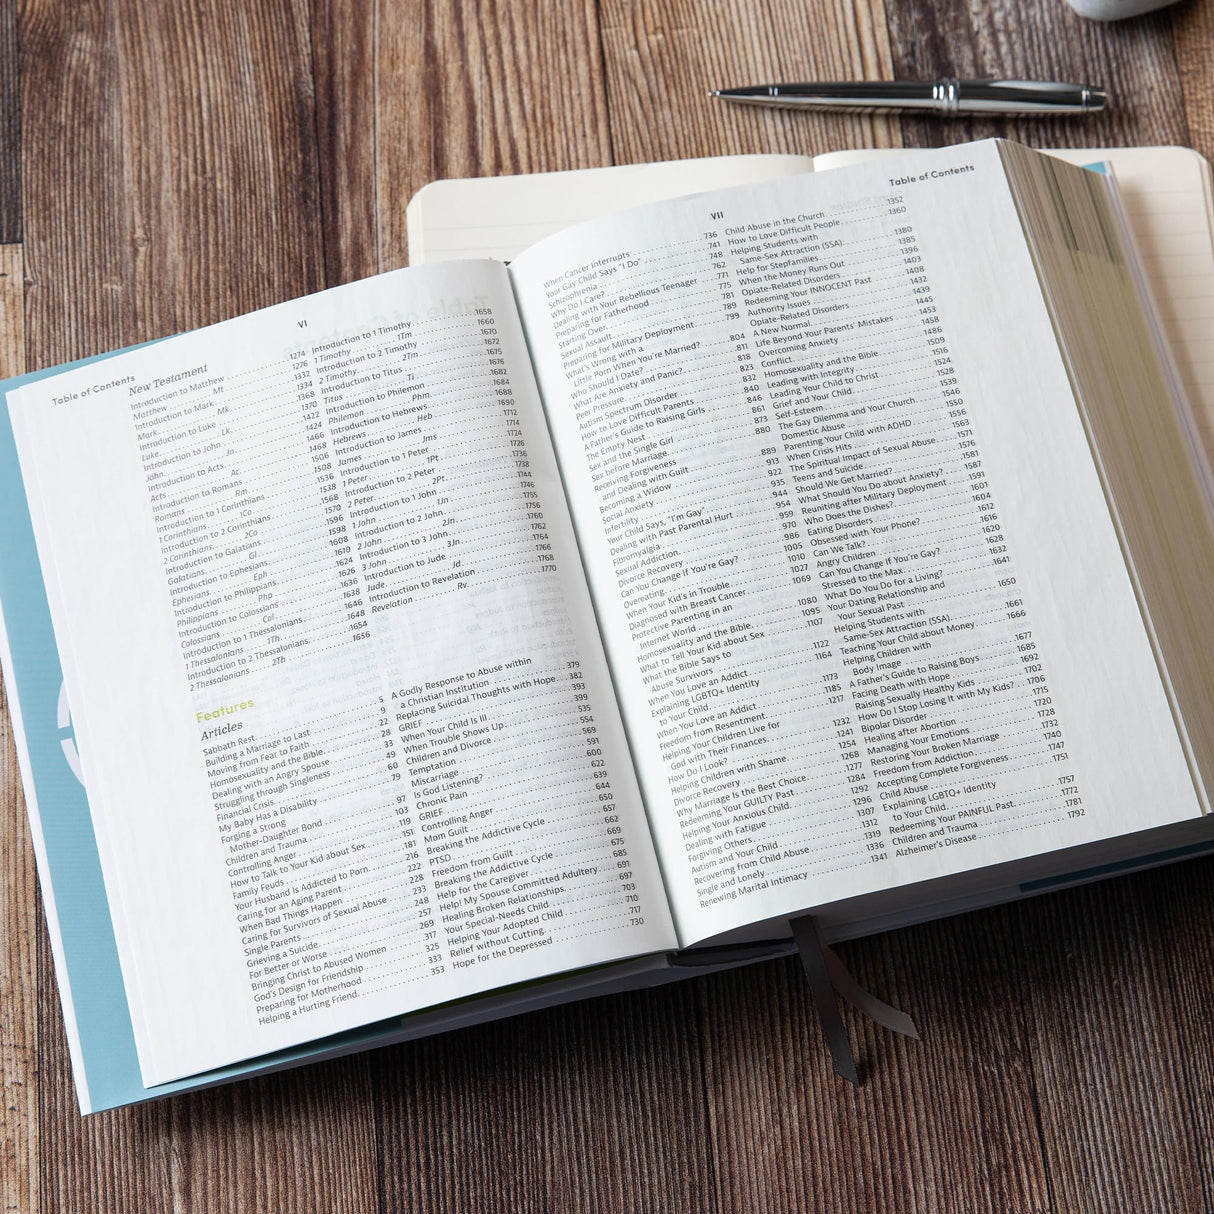 Table of Contents
VI
New Testament
Introduction to Matthew 1274
Matthew Mt 1276
Introduction to Mark 1332
Mark Mk 1334
Introduction to Luke 1368
Luke Lk 1370
Introduction to John 1422
John Jn 1424
Introduction to Acts 1466
Acts Ac 1468
Introduction to Romans 1506
Romans Rm 1508
Introduction to 1 Corinthians 1536
1 Corinthians 1Co 1538
Introduction to 2 Corinthians 1568
2 Corinthians 2Co 1570
Introduction to Galatians 1596
Galatians Gl 1598
Introduction to Ephesians 1608
Ephesians Eph 1610
Introduction to Philippians 1624
Philippians Php 1626
Introduction to Colossians 1636
Colossians Col 1638
Introduction to 1 Thessalonians 1646
1 Thessalonians 1Th 1648
Introduction to 2 Thessalonians 1654
2 Thessalonians 2Th 1656
Introduction to 1 Timothy 1658
1 Timothy 1Tm 1660
Introduction to 2 Timothy 1670
2 Timothy 2Tm 1672
Introduction to Titus 1675
Titus Ti 1676
Introduction to Philemon 1682
Philemon Phm 1684
Introduction to Hebrews 1688
Hebrews Heb 1690
Introduction to James 1712
James Jms 1714
Introduction to 1 Peter 1724
1 Peter 1Pt 1726
Introduction to 2 Peter 1736
2 Peter 2Pt 1738
Introduction to 1 John 1744
1 John 1Jn 1746
Introduction to 2 John 1755
2 John 2Jn 1756
Introduction to 3 John 1760
3 John 3Jn 1762
Introduction to Jude 1764
Jude Jd 1766
Introduction to Revelation 1768
Revelation Rv 1770
Features
Articles
Sabbath Rest 5
Building a Marriage to Last 9
Moving from Fear to Faith 22
Homosexuality and the Bible 28
Dealing with an Angry Spouse 33
Struggling through Singleness 49
Financial Crisis 60
My Baby Has a Disability 79
Forging a Strong
Mother-Daughter Bond 97
Children and Trauma 103
Controlling Anger 119
How to Talk to Your Kid about Sex 151
Family Feuds 181
Your Husband Is Addicted to Porn 216
Caring for an Aging Parent 222
When Bad Things Happen 228
Caring for Survivors of Sexual Abuse 233
Single Parents 248
Grieving a Suicide 257
For Better or Worse 269
Bringing Christ to Abused Women 317
God's Design for Friendship 325
Preparing for Motherhood 333
Helping a Hurting Friend 353
A Godly Response to Abuse within
a Christian Institution 379
Replacing Suicidal Thoughts with Hope 382
GRIEF 393
When Your Child Is Ill 399
When Trouble Shows Up 535
Children and Divorce 554
Temptation 569
Miscarriage 591
Is God Listening? 600
Chronic Pain 622
GRIEF 639
Controlling Anger 644
Mom Guilt 650
Breaking the Addictive Cycle 657
PTSD 662
Freedom from Guilt 669
Breaking the Addictive Cycle 675
Help for the Caregiver 685
Help! My Spouse Committed Adultery 691
Healing Broken Relationships 697
Your Special-Needs Child 703
Helping Your Adopted Child 710
Relief without Cutting 717
Hope for the Depressed 730
VII
Table of Contents
When Cancer Interrupts 736
Your Gay Child Says "I Do" 741
Schizophrenia 748
Why Do I Care? 762
Dealing with Your Rebellious Teenager 771
Preparing for Fatherhood 775
Starting Over 781
Sexual Assault 789
Preparing for Military Deployment 799
What's Wrong with a
Little Porn When You're Married? 804
Who Should I Date? 811
What Are Anxiety and Panic? 818
Peer Pressure 823
Autism Spectrum Disorder 832
How to Love Difficult Parents 840
A Father's Guide to Raising Girls 846
The Empty Nest 861
Sex and the Single Girl 873
Sex before Marriage 880
Receiving Forgiveness
and Dealing with Guilt 889
Becoming a Widow 913
Social Anxiety 922
Infertility 935
Your Child Says, "I'm Gay" 944
Dealing with Past Parental Hurt 954
Fibromyalgia 959
Sexual Addiction 970
Divorce Recovery 986
Can You Change If You're Gay? 1005
Overeating 1010
When Your Kid's in Trouble 1027
Diagnosed with Breast Cancer 1069
Protective Parenting in an
Internet World 1080
Homosexuality and the Bible 1095
What to Tell Your Kid about Sex 1107
What the Bible Says to
Abuse Survivors 1122
When You Love an Addict 1164
Explaining LGBTQ+ Identity
to Your Child 1173
When You Love an Addict 1185
Freedom from Resentment 1217
Helping Your Children Live for
God with Their Finances 1232
How Do I Look? 1241
Helping Children with Shame 1254
Divorce Recovery 1268
Why Marriage Is the Best Choice 1277
Redeeming Your GUILTY Past 1284
Helping Your Anxious Child 1292
Dealing with Fatigue 1296
Forgiving Others 1307
Autism and Your Child 1312
Recovering from Child Abuse 1319
Single and Lonely 1336
Renewing Marital Intimacy 1341
Child Abuse in the Church 1352
How to Love Difficult People 1360
Helping Students with
Same-Sex Attraction (SSA) 1380
Help for Stepfamilies 1385
When the Money Runs Out 1396
Opiate-Related Disorders 1403
Redeeming Your INNOCENT Past 1408
Authority Issues 1432
Opiate-Related Disorders 1439
A New Normal 1445
Life Beyond Your Parents' Mistakes 1453
Overcoming Anxiety 1458
Conflict 1486
Homosexuality and the Bible 1509
Leading with Integrity 1516
Leading Your Child to Christ 1524
Grief and Your Child 1528
Self-Esteem 1539
The Gay Dilemma and Your Church 1546
Domestic Abuse 1550
Parenting Your Child with ADHD 1556
When Crisis Hits 1563
The Spiritual Impact of Sexual Abuse 1571
Teens and Suicide 1576
Should We Get Married? 1581
What Should You Do about Anxiety? 1587
Reuniting after Military Deployment 1591
Who Does the Dishes? 1601
Eating Disorders 1604
Obsessed with Your Phone? 1612
Can We Talk? 1616
Angry Children 1620
Can You Change If You're Gay? 1628
Stressed to the Max 1632
What Do You Do for a Living? 1641
Your Dating Relationship and
Your Sexual Past 1650
Helping Students with
Same-Sex Attraction (SSA) 1661
Teaching Your Child about Money 1666
Helping Children with
Body Image 1677
A Father's Guide to Raising Boys 1685
Facing Death with Hope 1692
Raising Sexually Healthy Kids 1702
How Do I Stop Losing It with My Kids? 1706
Bipolar Disorder 1715
Healing after Abortion 1720
Managing Your Emotions 1728
Restoring Your Broken Marriage 1732
Freedom from Addiction 1740
Accepting Complete Forgiveness 1747
Child Abuse 1751
Explaining LGBTQ+ Identity
to Your Child 1757
Redeeming Your PAINFUL Past 1772
Children and Trauma 1781
Alzheimer's Disease 1792